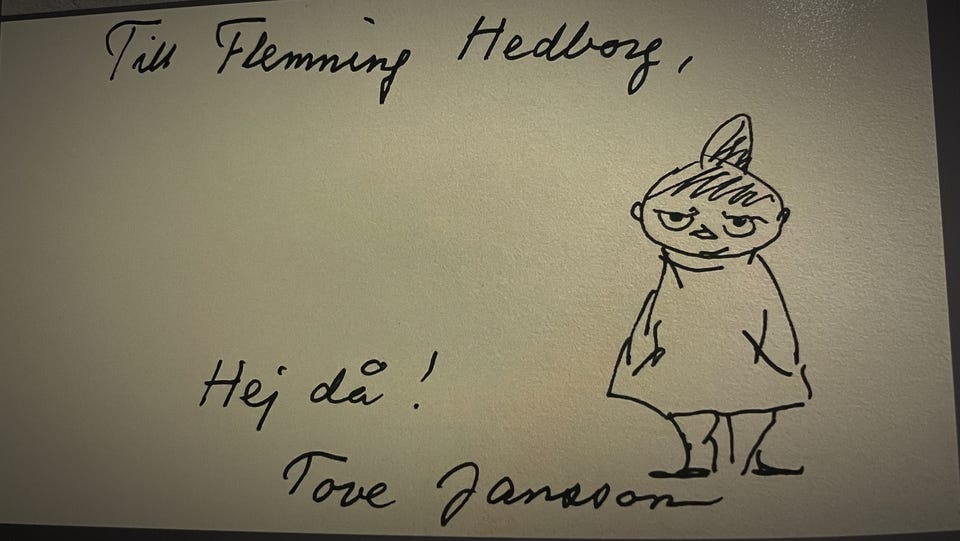 Till Flemming Hedborg,
Hej då!
Tove Jansson